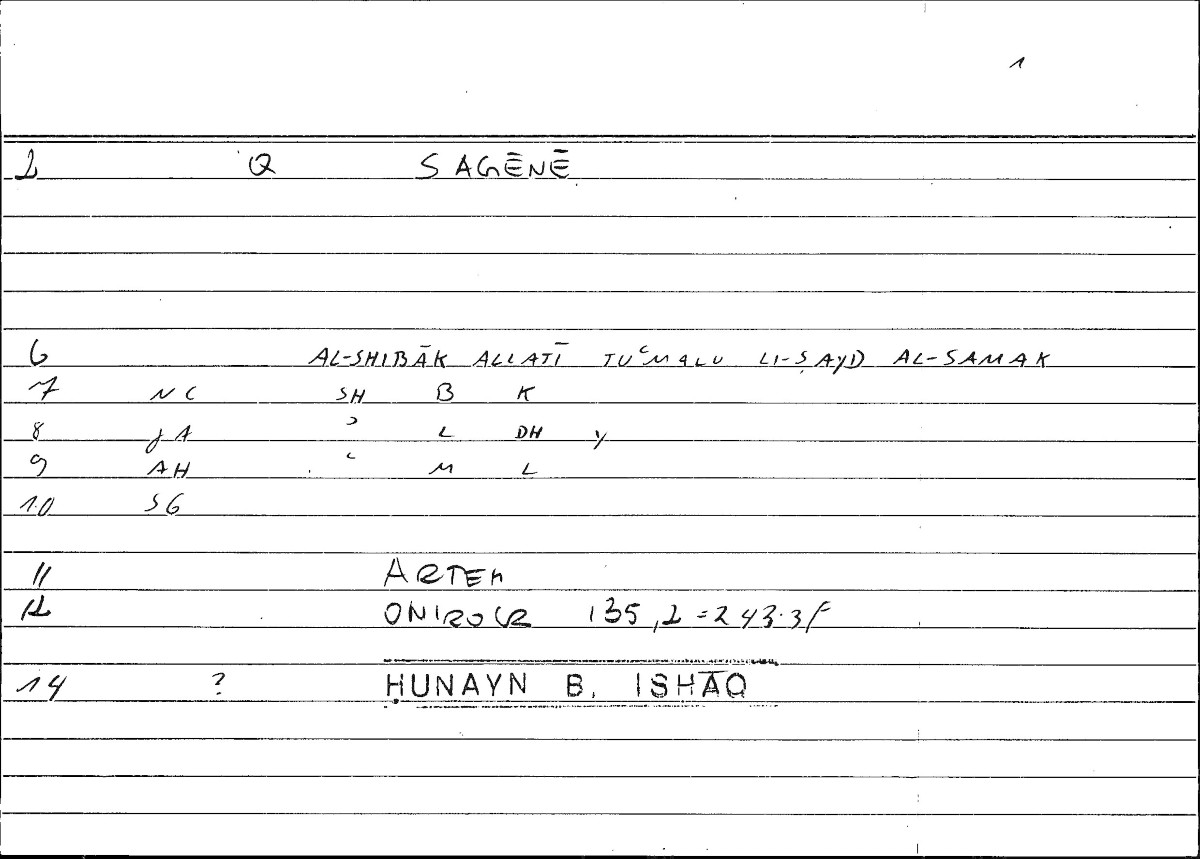 1
2 Q SAGĒNĒ
6 AL-SHIBĀK ALLATĪ TUʿMALU LI-ṢAYD AL-SAMAK
7 NC SH B K
8 JA ʾ L DH Y
9 AH ʿ M L
10 SG
11 ARTEM
12 ONIROCR 135,2=243.3F
14 ? ḤUNAYN B. ISḤĀQ